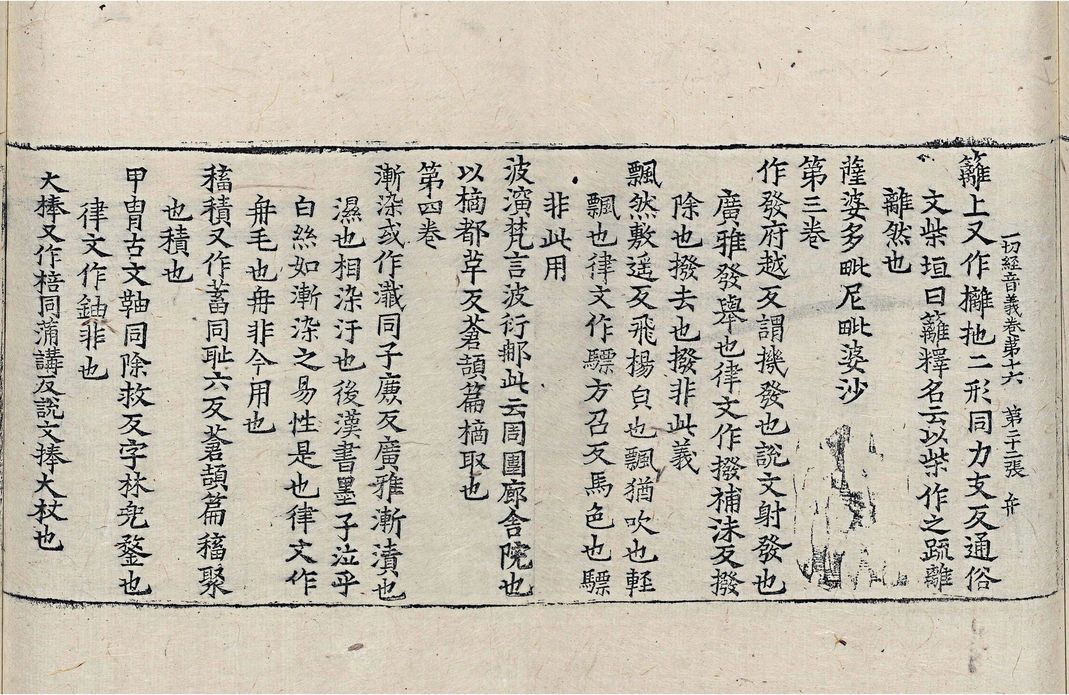 一切經音義卷第十六　第二十二張　弁
籬上又作攡扡二形同力支反通俗
文柴垣曰籬釋名云以柴作之踈離
離然也
薩婆多毗尼毗婆沙
第三卷
作發府越反謂機發也說文射發也
廣雅發舉也律文作撥補沬反撥
除也撥去也撥非此義
飄然敷遥反飛楊皃也飄猶吹也輕
飄也律文作驃方召反馬色也驃
非此用
波演梵言波衍郍此云周圍廊舍院也
以樀都草反蒼頡篇樀取也
第四卷
漸染或作瀸同子廉反廣雅漸漬也
濕也相染汙也後漢書墨子泣乎
白絲如漸染之易性是也律文作
冄毛也冄非今用也
稸積又作蓄同耻六反蒼頡篇稸聚
也積也
甲冑古文䩜同除救反字林兜鍪也
律文作鈾非也
大捧又作棓同蒲講反說文捧大杖也